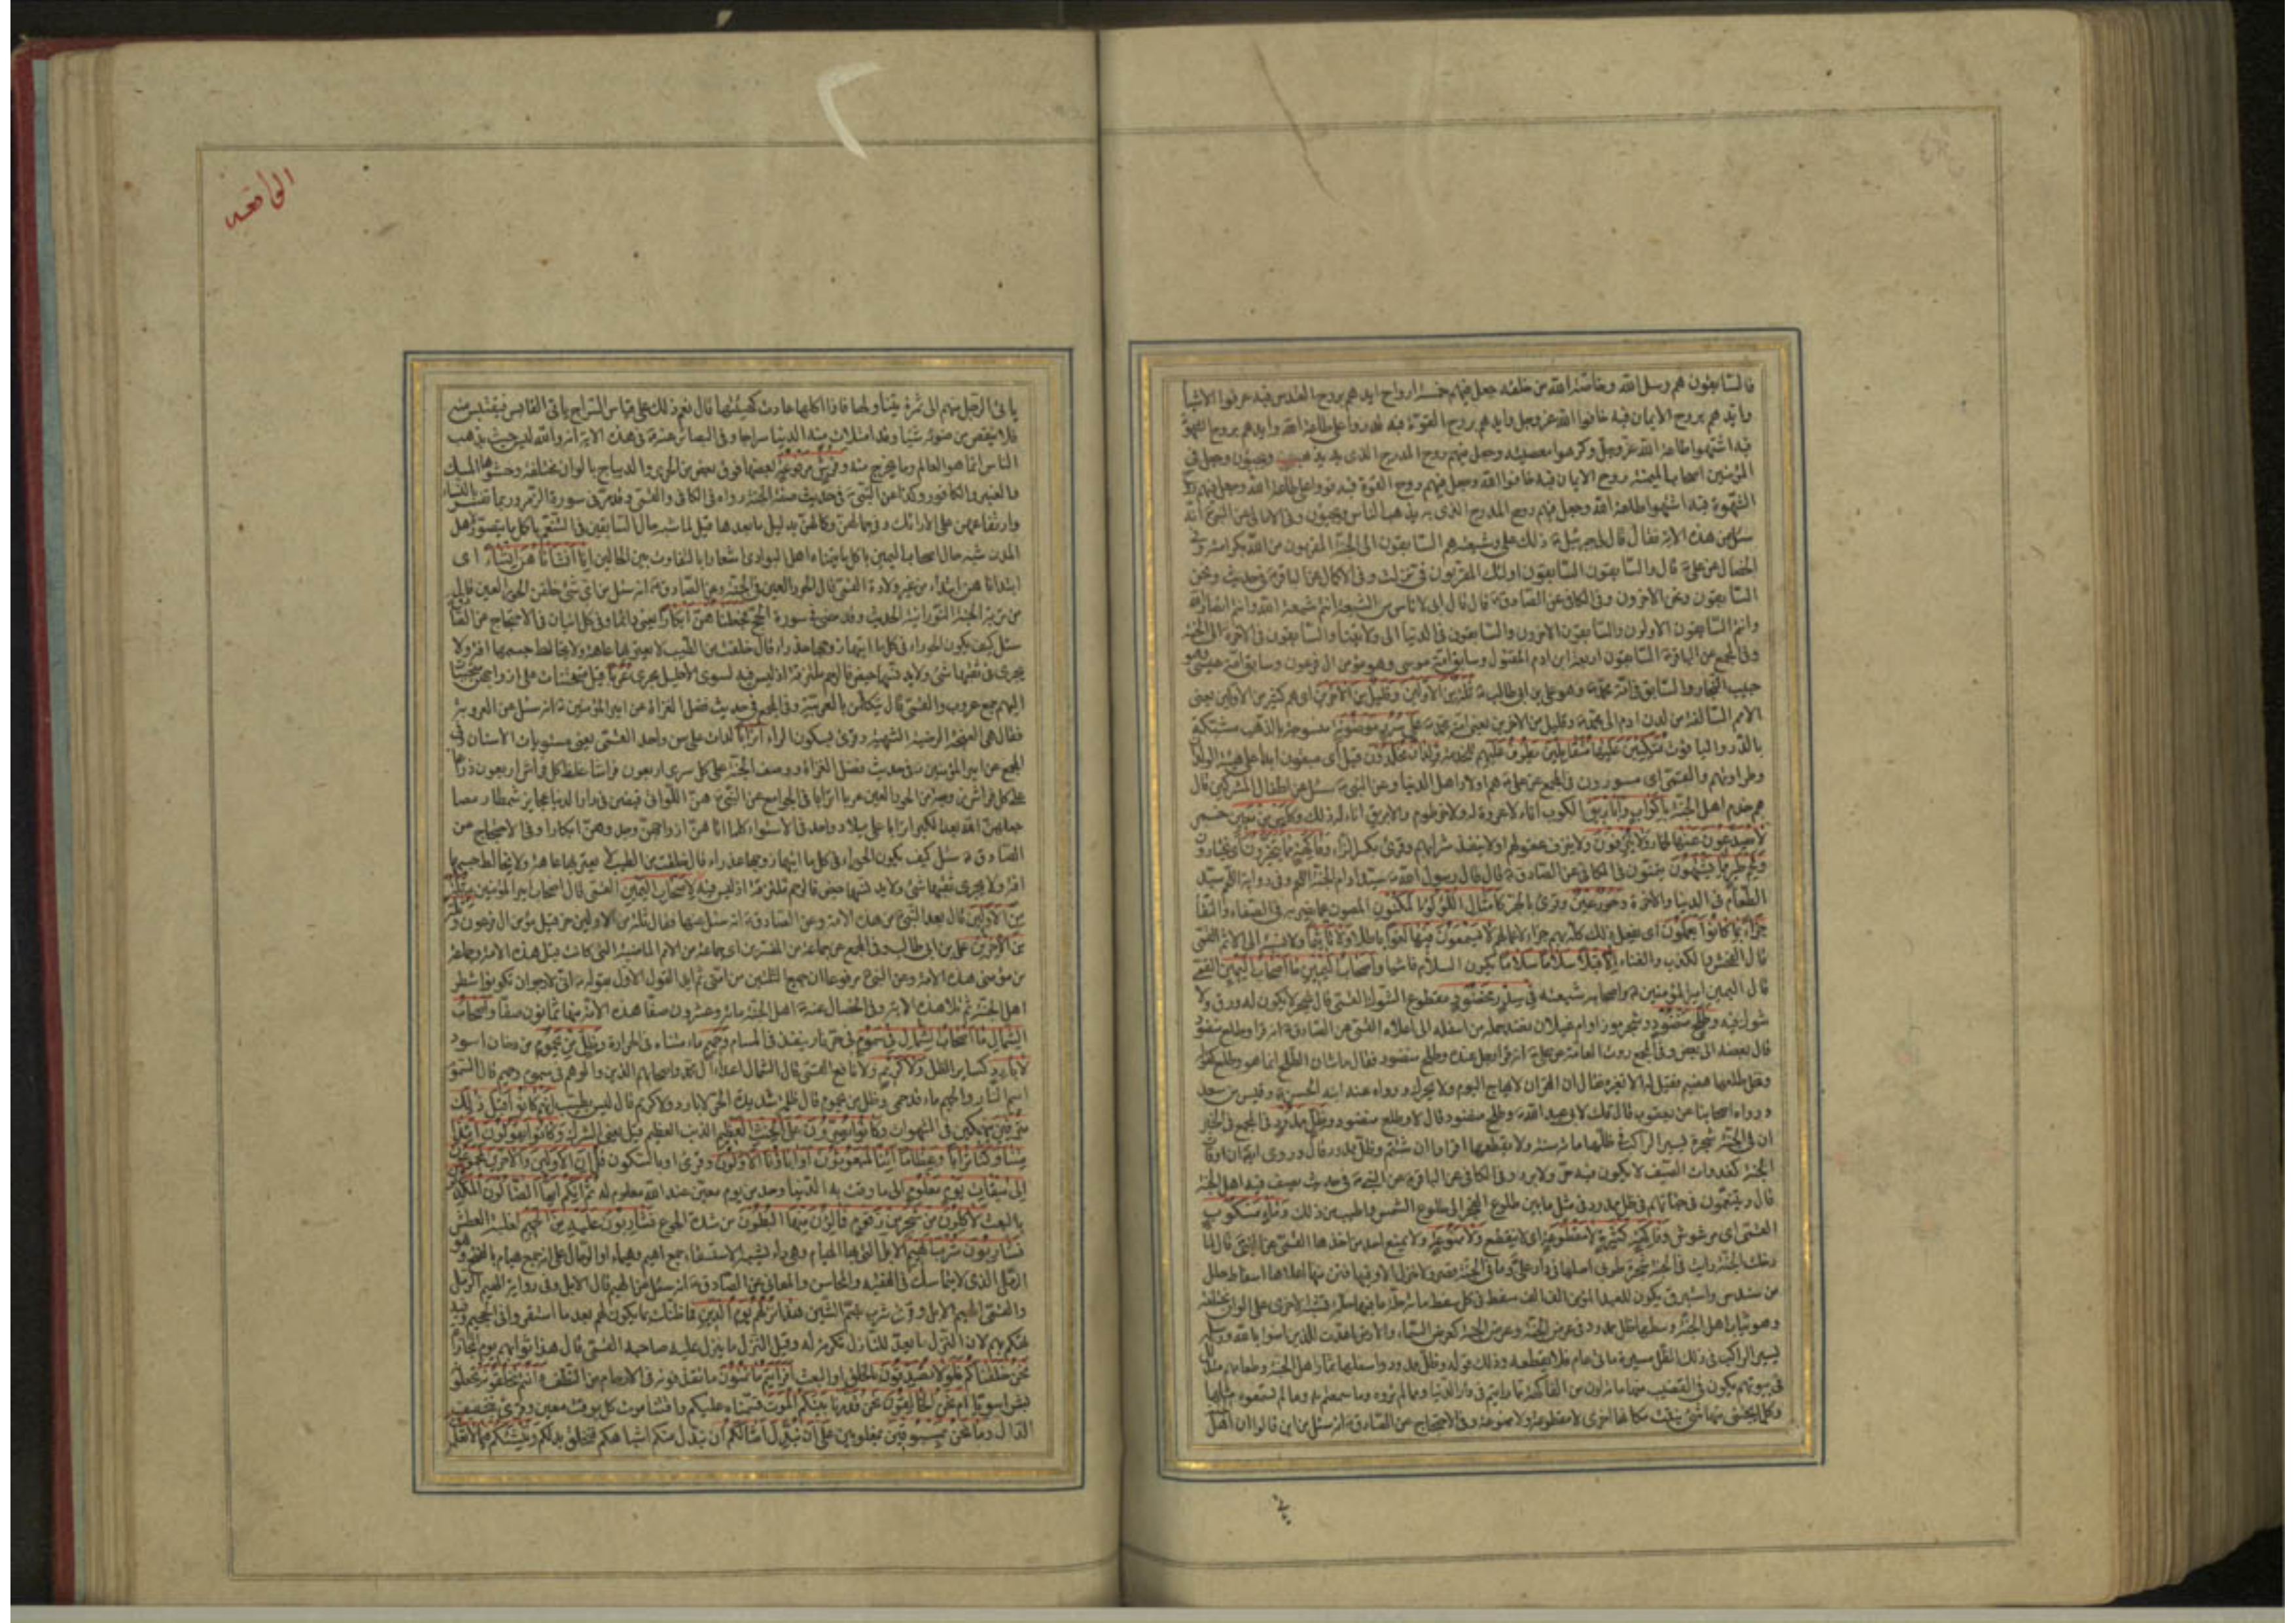 فالسابقون هم رسل الله وخاصة الله من خلقه جعل فيهم خمسة ارواح ايدهم بروح القدس فبه عرفوا الاشياء
وايدهم بروح الايمان فبه خافوا الله عز وجل وايدهم بروح القوة فبه قدروا على طاعة الله وايدهم بروح الشهوة
فبه اشتهوا طاعة الله عز وجل وكرهوا معصيته وجعل فيهم روح المدرج الذى به يذهبون ويجيئون وجعل فى
المؤمنين اصحاب الميمنة روح الايمان فبه خافوا الله وجعل فيهم روح القوة فبه قووا على طاعة الله وجعل فيهم روح
الشهوة فبه اشتهوا طاعة الله وجعل فيهم روح المدرج الذى به يذهب الناس ويجيئون وفى الامالى عن النبى انه
سئل عن هذه الاية فقال قال لى جبرئيل ذلك على وشيعته هم السابقون الى الجنة المقربون من الله بكرامته وفى
الخصال عن على قال والسابقون السابقون اولئك المقربون فى نزلت وفى الاكمال عن الباقر فى حديث ونحن
السابقون ونحن الاخرون وفى الكافى عن الصادق قال قال ابى لاناس من الشيعة انتم شيعة الله وانتم انصار الله
وانتم السابقون الاولون والسابقون الاخرون والسابقون فى الدنيا الى ولايتنا والسابقون فى الاخرة الى الجنة
وفى المجمع عن الباقر السابقون اربعة ابن ادم المقتول وسابق امة موسى وهو مؤمن ال فرعون وسابق امة عيسى وهو
حبيب النجار والسابق فى امة محمد وهو على بن ابى طالب ثلة من الاولين وقليل من الاخرين اى هم كثير من الاولين يعنى
الامم السالفة من لدن ادم الى محمد وقليل من الاخرين يعنى امة محمد على سرر موضونة منسوجة بالذهب مشبكة
بالدر والياقوت متكئين عليها متقابلين يطوف عليهم للخدمة ولدان مخلدون قيل اى مبقون ابدا على هيئة الولدان
وطراوتهم والقمى اى مسورون فى المجمع عن على هم اولاد اهل الدنيا وعن النبى سئل عن اطفال المشركين قال
هم خدم اهل الجنة باكواب واباريق الكوب اناء لا عروة له ولا خرطوم والابريق اناء له ذلك وكاس من معين خمر
لا يصدعون عنها لخمار ولا ينزفون ولا ينزف عقولهم او لا ينفد شرابهم وقرئ بكسر الزاء وفاكهة مما يتخيرون اى يختارون
ولحم طير مما يشتهون يتمنون فى الكافى عن الصادق قال قال رسول الله سيد ادام الجنة اللحم وفى رواية اللحم سيد
الطعام فى الدنيا والاخرة وحور عين وقرئ بالجر كامثال اللؤلؤ المكنون المصون عما يضر به فى الصفاء والنقاء
جزاء بما كانوا يعملون اى يفعل ذلك كله بهم جزاء لاعمالهم لا يسمعون فيها لغوا باطلا ولا تاثيما ولا نسبة الى الاثم القمى
قال الفحش والكذب والغناء الا قيلا سلاما سلاما يكون السلام فاشيا واصحاب اليمين ما اصحاب اليمين القمى
قال اليمين امير المؤمنين واصحابه شيعته فى سدر مخضود مقطوع الشوك القمى قال شجر لا يكون له ورق ولا
شوك فيه وطلح منضود وشجر موز او ام غيلان نضد حمله من اسفله الى اعلاه القمى عن الصادق انه قرأ وطلع منضود
قال بعضه الى بعض وفى المجمع روت العامة عن على انه قرأ رجل عنده وطلح منضود فقال ما شان الطلح انما هو وطلع كقوله
ونخل طلعها هضيم فقيل له الا تغيره فقال ان القران لا يهاج اليوم ولا يحرك ورواه عنه ابنه الحسن وقيس بن سعد
ورواه اصحابنا عن يعقوب قال قلت لابى عبد الله وطلح منضود قال لا وطلع منضود وظل ممدود فى المجمع فى الخبر
ان فى الجنة شجرة يسير الراكب فى ظلها مائة سنة ولا يقطعها اقرأوا ان شئتم وظل ممدود قال وروى ايضا ان اوقات
الجنة كغدوات الصيف لا يكون فيه حر ولا برد وفى الكافى عن الباقر عن النبى فى حديث يصف فيه اهل الجنة
قال ويتنعمون فى جناتهم فى ظل ممدود فى مثل ما بين طلوع الفجر الى طلوع الشمس واطيب من ذلك وماء مسكوب
القمى اى مرشوش وفاكهة كثيرة لا مقطوعة اى لا ينقطع ولا ممنوعة ولا يمنع احد من اخذها القمى عن النبى قال لما
دخلت الجنة رايت فى الجنة شجرة طوبى اصلها فى دار على وما فى الجنة قصر ولا منزل الا وفيها فتر منها اعلاها اسفاط حلل
من سندس واستبرق يكون للعبد المؤمن الف الف سفط فى كل سفط مائة حلة ما فيها حلة تشبه الاخرى على الوان مختلفة
وهو ثياب اهل الجنة وسطها ظل ممدود فى عرض الجنة وعرض الجنة كعرض السماء والارض اعدت للذين امنوا بالله ورسله
يسير الراكب فى ذلك الظل مسيرة مائة عام فلا يقطعه وذلك قوله وظل ممدود واسفلها ثمار اهل الجنة وطعامهم متدلل
فى بيوتهم يكون فى القضيب منها مائة لون من الفاكهة مما رايتم فى دار الدنيا ومما لم تروه وما سمعتم به وما لم تسمعوه مثلها
وكلما يجتنى منها شئ نبتت مكانها اخرى لا مقطوعة ولا ممنوعة وفى الاحتجاج عن الصادق انه سئل من اين قالوا ان اهل
يا
الواقعه
ياتى الرجل منهم الى ثمرة يتناولها فاذا اكلها عادت كهيئتها قال نعم ذلك على قياس السراج ياتى القابس فيقتبس منه
فلا ينقص من ضوئه شيئا وقد امتلات منه الدنيا سراجا وفى البصائر عنه فى هذه الاية انه والله ليس حيث يذهب
الناس انما هو العالم وما يخرج منه وفرش مرفوعة بعضها فوق بعض من الحرير والديباج بالوان مختلفة وحشوها المسك
والعنبر والكافور وكذا عن النبى فى حديث صفة الجنة رواه فى الكافى والقمى وقد مر فى سورة الزمر وربما تفسر بالنساء
وارتفاعهن على الارائك وفى جمالهن وكمالهن بدليل ما بعدها قيل لما شبه حال السابقين فى التنعم باكمل ما يتصور لاهل
المدن شبه حال اصحاب اليمين باكمل ما يتمناه اهل البوادى اشعارا بالتفاوت بين الحالين انا انشاناهن انشاء اى
ابتداناهن ابتداء من غير ولادة القمى قال الحور العين فى الجنة وعن الصادق انه سئل من اى شئ خلقن الحور العين قال
من تربة الجنة النورانية الحديث وقد مضى فى سورة الحج فجعلناهن ابكارا يعنى دائما وفى كل اتيان فى الاحتجاج عن الصادق
سئل كيف يكون الحوراء فى كل ما اتيها زوجها عذراء قال خلقت من الطيب لا يعتريها عاهة ولا يخالط جسمها افة ولا
يجرى فى ثقبها شئ ولا يدنسها حيض فالرحم ملتزقة اذ ليس فيه لسوى الاحليل مجرى عربا قيل متحننات على ازواجهن متحببات
اليهم جمع عروب والقمى قال يتكلمن بالعربية وفى المجمع فى حديث فضل الغزاة عن امير المؤمنين انه سئل عن العروبة
فقال هى الغنجة الرضية الشهية وقرئ بسكون الراء اترابا لدات على سن واحد القمى يعنى مستويات الاسنان فى
المجمع عن امير المؤمنين فى حديث فضل الغزاة ووصف الجنة على كل سرير اربعون فراشا غلظ كل فراش اربعون ذراعا
على كل فراش زوجة من الحور العين عربا اترابا فى الجوامع عن النبى هن اللواتى قبضن فى دار الدنيا عجايز شمطا رمصا
جعلهن الله بعد الكبر اترابا على ميلاد واحد فى الاستواء كلما اتاهن ازواجهن وجدوهن ابكارا وفى الاحتجاج عن
الصادق سئل كيف يكون الحوراء فى كل ما اتيها زوجها عذراء قال خلقت من الطيب لا يعتريها عاهة ولا يخالط جسمها
افة ولا يجرى ثقبها شئ ولا يدنسها حيض فالرحم ملتزقة اذ ليس فيه لاصحاب اليمين القمى قال اصحاب امير المؤمنين ثلة
من الاولين قال بعد النبى من هذه الامة وعن الصادق انه سئل عنها فقال ثلة من الاولين حزقيل مؤمن ال فرعون وثلة
من الاخرين على بن ابى طالب وفى المجمع عن جماعة من المفسرين اى جماعة من الامم الماضية التى كانت قبل هذه الامة وجماعة
من مؤمنى هذه الامة وعن النبى مرفوعا ان جميع الثلتين من امتى ثم ايد القول الاول بقوله انى لارجو ان تكونوا شطر
اهل الجنة ثم تلا هذه الاية وفى الخصال عنه اهل الجنة مائة وعشرون صفا هذه الامة منها ثمانون صفا واصحاب
الشمال ما اصحاب الشمال فى سموم فى حر نار ينفذ فى المسام وحميم ماء متناه فى الحرارة وظل من يحموم من دخان اسود
لا بارد كساير الظل ولا كريم ولا نافع القمى قال الشمال اعداء آل محمد واصحابهم الذين والوهم فى سموم وحميم قال السموم
اسم النار والحميم ماء قد حمى وظل من يحموم قال ظلمة شديدة الحر لا بارد ولا كريم قال ليس بطيب انهم كانوا قبل ذلك
مترفين منهمكين فى الشهوات وكانوا يصرون على الحنث العظيم الذنب العظيم قيل يعنى الشرك وكانوا يقولون ائذا
متنا وكنا ترابا وعظاما ائنا لمبعوثون اواباؤنا الاولون وقرئ او بالسكون قل ان الاولين والاخرين لمجموعون
الى ميقات يوم معلوم الى ما وقت به الدنيا وحد من يوم معين عند الله معلوم له ثم انكم ايها الضالون المكذبون
بالبعث لاكلون من شجر من زقوم فمالئون منها البطون من شدة الجوع فشاربون عليه من الحميم لغلبة العطش
فشاربون شرب الهيم الابل التى بها الهيام وهو داء يشبه الاستسقاء جمع اهيم وهيماء او الرمال على انه جمع هيام بالفتح وهو
الرمل الذى لا يتماسك فى الفقيه والمحاسن والمعانى عن الصادق انه سئل عن الهيم قال الابل وفى رواية الهيم الرمل
والقمى الهيم الابل وقرئ شرب بضم الشين هذا نزلهم يوم الدين فما ظنك بما يكون لهم بعد ما استقروا فى الجحيم وفيه
تهكم بهم لان النزل ما يعد للنازل تكرمة له وقيل النزل ما ينزل عليه صاحبه القمى قال هذا ثوابهم يوم المجازاة
نحن خلقناكم فلولا تصدقون بالخلق او البعث افرايتم ما تمنون ما تقذفونه فى الارحام من النطف ءانتم تخلقونه تجعلونه
بشرا سويا ام نحن الخالقون نحن قدرنا بينكم الموت قسمناه عليكم واقتنا موت كل بوقت معين وقرئ بتخفيف
الدال وما نحن بمسبوقين بمغلوبين على ان نبدل امثالكم ان نبدل منكم اشباهكم فنخلق بدلكم وننشئكم فيما لا تعلمون